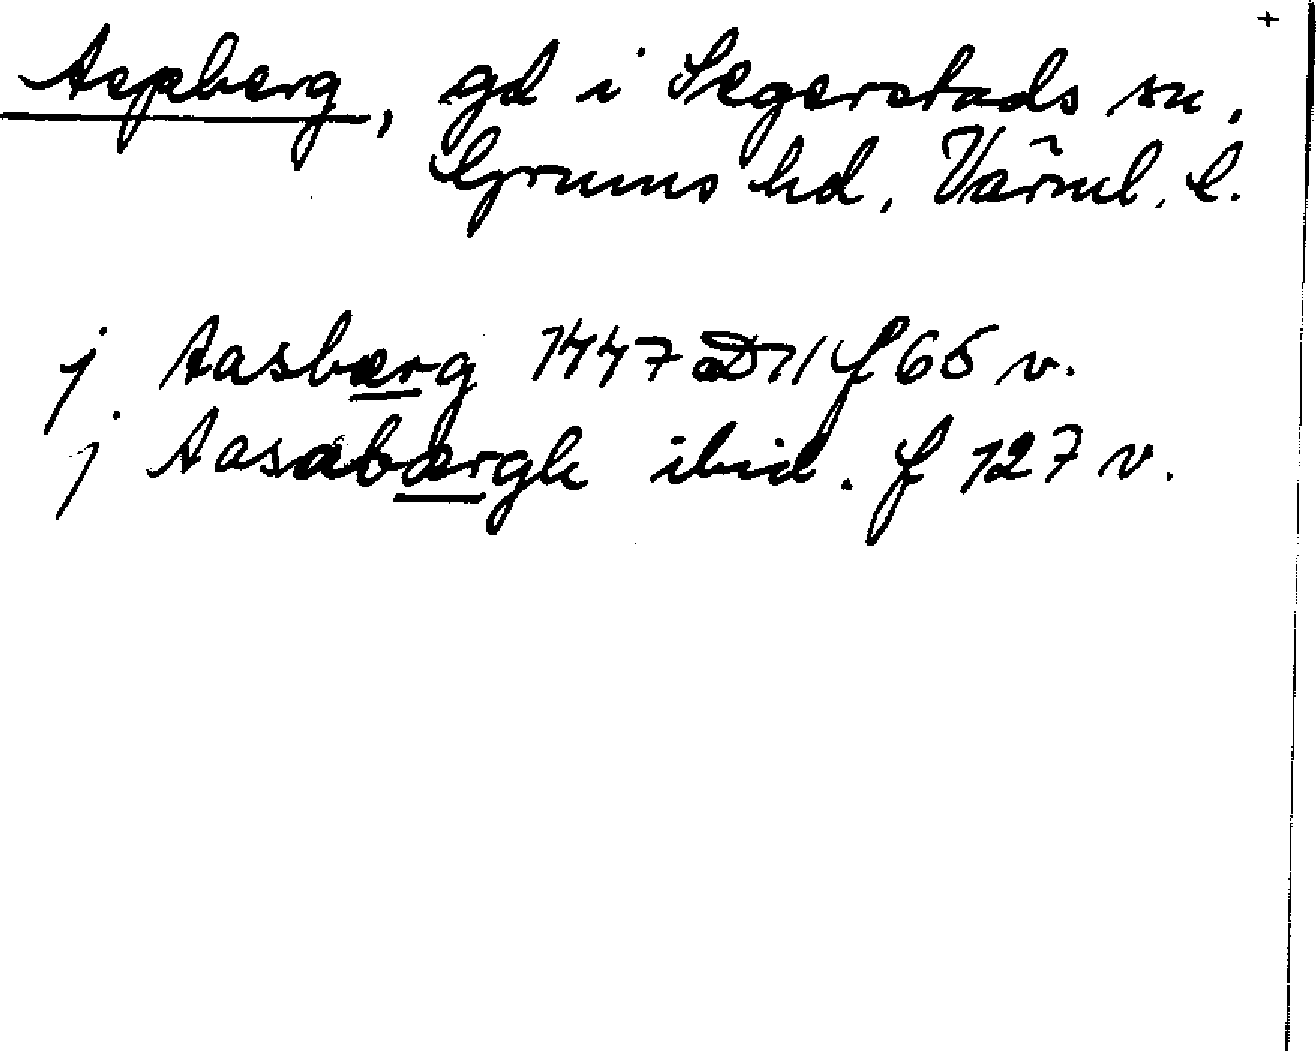 +
Aspberg, gd i Segerstads sn,
Grums hd, Värml. l.
j Aasbærg 1447 D 11 f 65 v.
j Aasabærgh ibid. f 127 v.